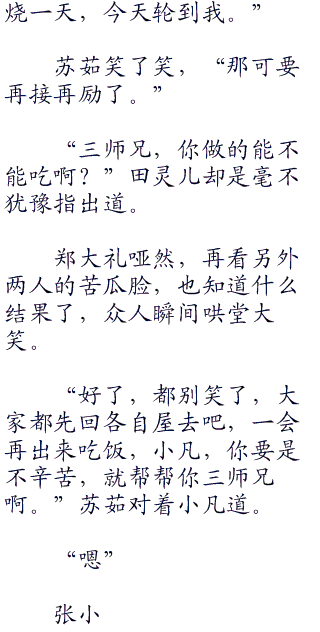 烧一天，今天轮到我。”
苏茹笑了笑，“那可要
再接再励了。”
“三师兄，你做的能不
能吃啊？”田灵儿却是毫不
犹豫指出道。
郑大礼哑然，再看另外
两人的苦瓜脸，也知道什么
结果了，众人瞬间哄堂大
笑。
“好了，都别笑了，大
家都先回各自屋去吧，一会
再出来吃饭，小凡，你要是
不辛苦，就帮帮你三师兄
啊。”苏茹对着小凡道。
“嗯”
张小